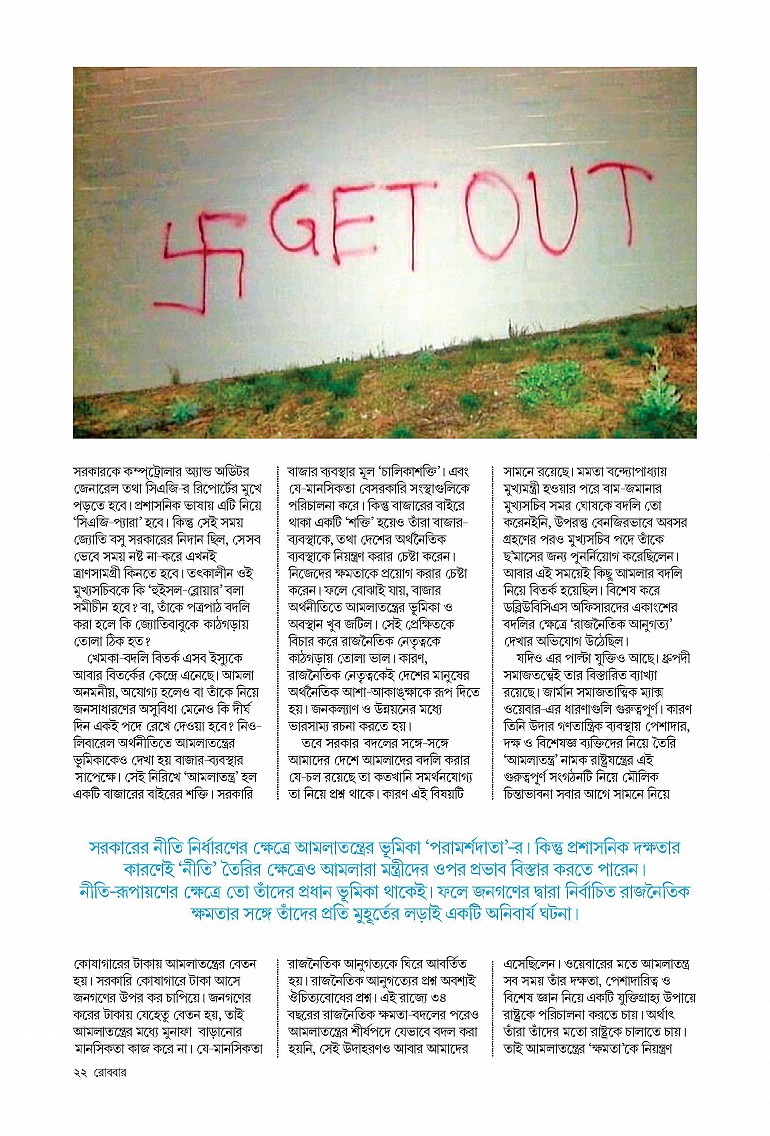 卐 GET OUT
সরকারকে কম্পট্রোলার অ্যান্ড অডিটর
জেনারেল তথা সিএজি-র রিপোর্টের মুখে
পড়তে হবে। প্রশাসনিক ভাষায় এটি নিয়ে
‘সিএজি-প্যারা’ হবে। কিন্তু সেই সময়
জ্যোতি বসু সরকারের নিদান ছিল, সেসব
ভেবে সময় নষ্ট না-করে এখনই
ত্রাণসামগ্রী কিনতে হবে। তৎকালীন ওই
মুখ্যসচিবকে কি ‘হুইসল-ব্লোয়ার’ বলা
সমীচীন হবে? বা, তাঁকে পত্রপাঠ বদলি
করা হলে কি জ্যোতিবাবুকে কাঠগড়ায়
তোলা ঠিক হত?
খেমকা-বদলি বিতর্ক এসব ইস্যুকে
আবার বিতর্কের কেন্দ্রে এনেছে। আমলা
অনমনীয়, অযোগ্য হলেও বা তাঁকে নিয়ে
জনসাধারণের অসুবিধা মেনেও কি দীর্ঘ
দিন একই পদে রেখে দেওয়া হবে? নিও-
লিবারেল অর্থনীতিতে আমলাতন্ত্রের
ভূমিকাকেও দেখা হয় বাজার-ব্যবস্থার
সাপেক্ষে। সেই নিরিখে ‘আমলাতন্ত্র’ হল
একটি বাজারের বাইরের শক্তি। সরকারি
বাজার ব্যবস্থার মূল ‘চালিকাশক্তি’। এবং
যে-মানসিকতা বেসরকারি সংস্থাগুলিকে
পরিচালনা করে। কিন্তু বাজারের বাইরে
থাকা একটি ‘শক্তি’ হয়েও তাঁরা বাজার-
ব্যবস্থাকে, তথা দেশের অর্থনৈতিক
ব্যবস্থাকে নিয়ন্ত্রণ করার চেষ্টা করেন।
নিজেদের ক্ষমতাকে প্রয়োগ করার চেষ্টা
করেন। ফলে বোঝাই যায়, বাজার
অর্থনীতিতে আমলাতন্ত্রের ভূমিকা ও
অবস্থান খুব জটিল। সেই প্রেক্ষিতকে
বিচার করে রাজনৈতিক নেতৃত্বকে
কাঠগড়ায় তোলা ভাল। কারণ,
রাজনৈতিক নেতৃত্বকেই দেশের মানুষের
অর্থনৈতিক আশা-আকাঙ্ক্ষাকে রূপ দিতে
হয়। জনকল্যাণ ও উন্নয়নের মধ্যে
ভারসাম্য রচনা করতে হয়।
তবে সরকার বদলের সঙ্গে-সঙ্গে
আমাদের দেশে আমলাদের বদলি করার
যে-চল রয়েছে তা কতখানি সমর্থনযোগ্য
তা নিয়ে প্রশ্ন থাকে। কারণ এই বিষয়টি
সামনে রয়েছে। মমতা বন্দ্যোপাধ্যায়
মুখ্যমন্ত্রী হওয়ার পরে বাম-জমানার
মুখ্যসচিব সমর ঘোষকে বদলি তো
করেনইনি, উপরন্তু বেনজিরভাবে অবসর
গ্রহণের পরও মুখ্যসচিব পদে তাঁকে
ছ’মাসের জন্য পুনর্নিয়োগ করেছিলেন।
আবার এই সময়েই কিছু আমলার বদলি
নিয়ে বিতর্ক হয়েছিল। বিশেষ করে
ডব্লিউবিসিএস অফিসারদের একাংশের
বদলির ক্ষেত্রে ‘রাজনৈতিক আনুগত্য’
দেখার অভিযোগ উঠেছিল।
যদিও এর পাল্টা যুক্তিও আছে। ধ্রুপদী
সমাজতত্ত্বেই তার বিস্তারিত ব্যাখ্যা
রয়েছে। জার্মান সমাজতাত্ত্বিক ম্যাক্স
ওয়েবার-এর ধারণাগুলি গুরুত্বপূর্ণ। কারণ
তিনি উদার গণতান্ত্রিক ব্যবস্থায় পেশাদার,
দক্ষ ও বিশেষজ্ঞ ব্যক্তিদের নিয়ে তৈরি
‘আমলাতন্ত্র’ নামক রাষ্ট্রযন্ত্রের এই
গুরুত্বপূর্ণ সংগঠনটি নিয়ে মৌলিক
চিন্তাভাবনা সবার আগে সামনে নিয়ে
সরকারের নীতি নির্ধারণের ক্ষেত্রে আমলাতন্ত্রের ভূমিকা ‘পরামর্শদাতা’-র। কিন্তু প্রশাসনিক দক্ষতার
কারণেই ‘নীতি’ তৈরির ক্ষেত্রেও আমলারা মন্ত্রীদের ওপর প্রভাব বিস্তার করতে পারেন।
নীতি-রূপায়ণের ক্ষেত্রে তো তাঁদের প্রধান ভূমিকা থাকেই। ফলে জনগণের দ্বারা নির্বাচিত রাজনৈতিক
ক্ষমতার সঙ্গে তাঁদের প্রতি মুহূর্তের লড়াই একটি অনিবার্য ঘটনা।
কোষাগারের টাকায় আমলাতন্ত্রের বেতন
হয়। সরকারি কোষাগারে টাকা আসে
জনগণের উপর কর চাপিয়ে। জনগণের
করের টাকায় যেহেতু বেতন হয়, তাই
আমলাতন্ত্রের মধ্যে মুনাফা বাড়ানোর
মানসিকতা কাজ করে না। যে-মানসিকতা
রাজনৈতিক আনুগত্যকে ঘিরে আবর্তিত
হয়। রাজনৈতিক আনুগত্যের প্রশ্ন অবশ্যই
ঔচিত্যবোধের প্রশ্ন। এই রাজ্যে ৩৪
বছরের রাজনৈতিক ক্ষমতা-বদলের পরেও
আমলাতন্ত্রের শীর্ষপদে যেভাবে বদল করা
হয়নি, সেই উদাহরণও আবার আমাদের
এসেছিলেন। ওয়েবারের মতে আমলাতন্ত্র
সব সময় তাঁর দক্ষতা, পেশাদারিত্ব ও
বিশেষ জ্ঞান নিয়ে একটি যুক্তিগ্রাহ্য উপায়ে
রাষ্ট্রকে পরিচালনা করতে চায়। অর্থাৎ
তাঁরা তাঁদের মতো রাষ্ট্রকে চালাতে চায়।
তাই আমলাতন্ত্রের ‘ক্ষমতা’কে নিয়ন্ত্রণ
২২ রোববার